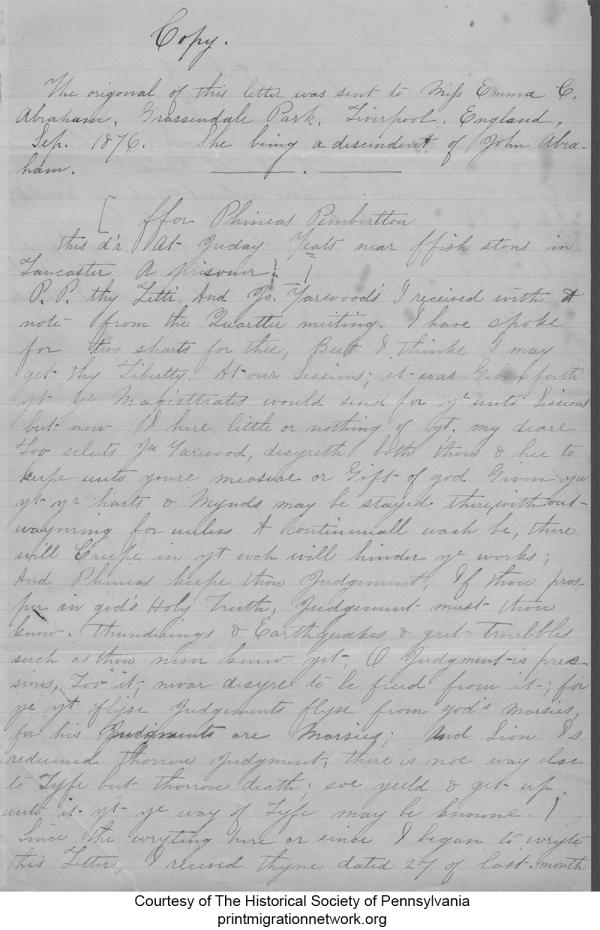 Copy.
The origonal of this letter was sent to Miss Emma C.
Abraham. Grassendale Park, Liverpool, England,
Sep. 1876. She being a discendent of John Abra-
ham.
[ ffor Phineas Pembertton
this d'r. At Juday Yeats near ffish stons in
Lancaster A prisoner
P. P. thy Lettr. And Jo. Yarwoods I received with A
note from the Quartter meiting. I have spoke
for two sharts for thee, But I thinke I may
get thy Libertty. At our Sessions; it was Given forth
yt ye Magisttrates would send for ye unto Sessions
but now I hire little or nothing of yt. my deare
Love seluts Jn Yarwood, desyreth both thou & hee to
keepe unto youre measure or Gift of god Given you
yt yr harts & Mynds may be stayed there, without
wayvering for unless A continuuall wach be, there
will Creepe in yt wch will hinder ye works;
And Phineas keepe thou Judgement; If thou pros-
per in god's Holy Truth, Judgement must thou
know. Thunderings & Earthquakes & gret troubbles
such as thou never knew yet. O Judgment is prec-
sius, Love it, nevar desyre to be freed from it; for
ye yt flyse Judgements flyse from god's marsies,
for his Judgments are Marsies; And Sion Is
redeemed thorrow Judgment, there is noe way else
to Lyfe but thorrow death: soe yeeld & get up
unto it yt ye way of Lyfe may be knowne.
Since the wryting here or since I began to wryte
this Letter, I received thyne dated 27 of last month
Courtesy of The Historical Society of Pennsylvania
printmigrationnetwork.org